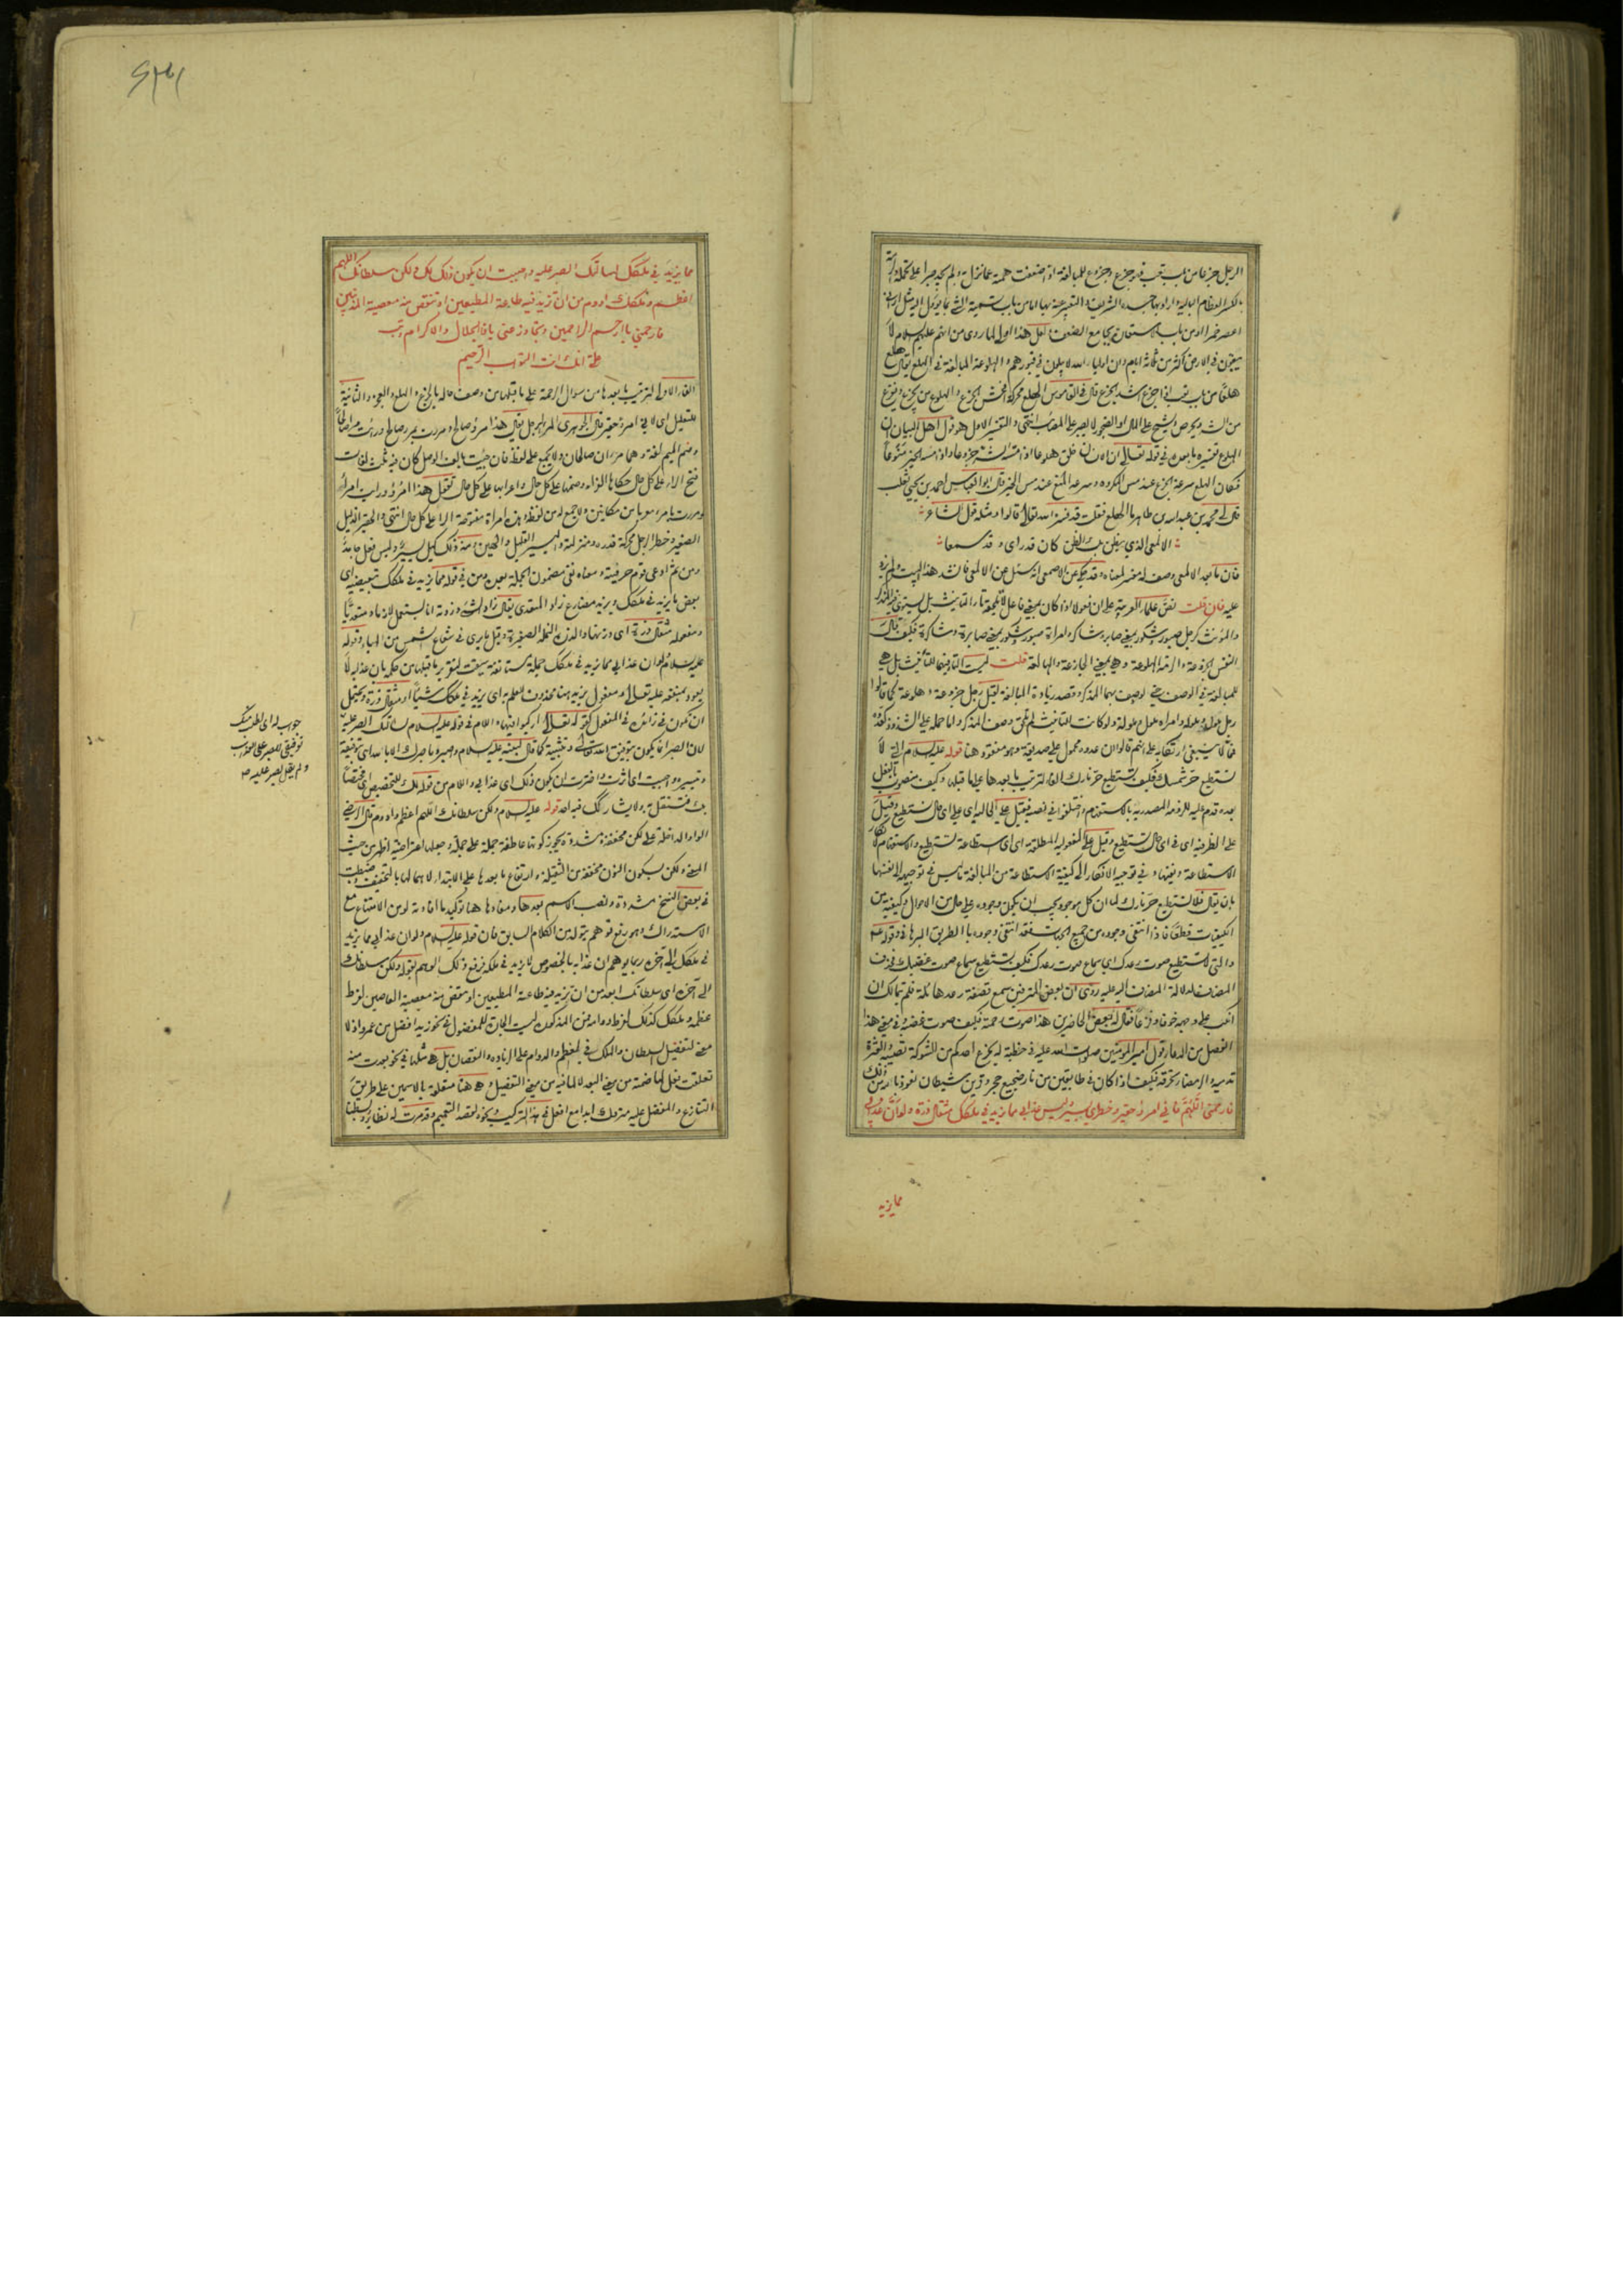 الرجل جزعا من باب تعب فهو جزع وجزوع للمبالغة اذا ضعفت همته عما نزل به ولم يجد صبرا على تحمله والرمة
بالكسر العظام البالية اراد بها جسده الشريف والتعبير عنه بها اما من باب تسمية الشيء بما يؤل اليه مثل اراني
اعصر خمرا او من باب الاستعارة بجامع الضعف ولعل هذا اولى لما روي من انهم عليهم السلام لا
يبقون في الارض اكثر من ثلاثة ايام وان اولياء الله لا يبلون في قبورهم والهلوعة المبالغة في الهلع يقال هلع
هلعا من باب تعب اذا جزع اشد الجزع قال في القاموس الهلع محركة افحش الجزع والهلوع من يجزع ويفزع
من الشر ويحرص ويشح على المال او الضجور لا يصبر على المصائب انتهى والتفسير الاول هو قول اهل البيان ان
الهلع تفسيره ما بعده في قوله تعالى ان الانسان خلق هلوعا اذا مسه الشر جزوعا واذا مسه الخير منوعا
فكان الهلع سرعة الجزع عند مس المكروه وسرعة المنع عند مس الخير قال ابو العباس احمد بن يحيى ثعلب
قال لي محمد بن عبد الله بن طاهر ما الهلع فقلت قد فسره الله تعالى قالوا ومثله قول الشاعر
الالمعي الذي يظن بك الظن كان قد راى وقد سمعا
فان ما بعد الالمعي وصف له مفسر لمعناه وقد حكي عن الاصمعي انه سئل عن الالمعي فانشد هذا البيت ولم يزد
عليه فان قلت نص علماء العربية على ان فعولا اذا كان بمعنى فاعل لا تلحقه تاء التانيث بل يستوي فيه المذكر
والمؤنث كرجل صبور وشكور بمعنى صابر وشاكر وامراة صبور وشكور بمعنى صابرة وشاكرة فكيف قال
النفس الجزوعة والرمة الهلوعة وهي بمعنى الجازعة والهالعة قلت ليست التاء فيهما للتانيث بل هي
للمبالغة في الوصف حتى لو صف بهما المذكر وقصد زيادة المبالغة لقيل رجل جزوعة وهلوعة كما قالوا
رجل ملول وملولة وامراة ملول وملولة ولو كانت للتانيث لم تلحق وصف المذكر واما حمله على الشذوذ كعدوة
فمما لا ينبغي ارتكابه على انهم قالوا ان عدوة محمول على صديقة وهو مفقود هنا قوله عليه السلام التي لا
تستطيع حر شمسك فكيف تستطيع حر نارك الفاء لترتيب ما بعدها على ما قبلها وكيف منصوب بالفعل
بعده وقدم عليه للزومه الصدرية بالاستفهام واختلفوا في نصبه فقيل على الحالية اي على اي حال تستطيع وقيل
على الظرفية اي في اي حال تستطيع وقيل على المفعولية المطلقة اي اي استطاعة تستطيع والاستفهام لانكار
الاستطاعة ونفيها وفي توجيه الانكار الى كيفية الاستطاعة من المبالغة ما ليس في توجيهه الى نفسها
بان يقال افلا تستطيع حر نارك لما ان كل موجود يجب ان يكون وجوده على حال من الاحوال وكيفية من
الكيفيات قطعا فاذا انتفى وجوده من جميع الجهات فقد انتفى وجوده بالطريق البرهاني وقوله ع
والتي لا تستطيع صوت رعدك اي سماع صوت رعدك فكيف تستطيع سماع صوت غضبك فحذف
المضاف لدلالة المضاف اليه عليه روي ان بعض المترفين سمع قصفة رعد هائلة فلم يتمالك ان
انكب على وجهه خوفا وفزعا فقال له بعض الحاضرين هذا صوت رحمة فكيف صوت غضبه وفي معنى هذا
الفصل من الدعاء قول امير المؤمنين صلوات الله عليه في خطبة له يجزع احدكم من الشوكة تصيبه والعثرة
تدميه والرمضاء تحرقه فكيف اذا كان في طابقين من نار ضجيع حجر وقرين شيطان نعوذ بالله من ذلك
فارحمني اللهم فاني امرؤ حقير وخطري يسير وليس عذابي مما يزيد في ملكك مثقال ذرة ولو ان عذابي
مما يزيد
مما يزيد في ملكك لسالتك الصبر عليه واحببت ان يكون ذلك لك ولكن سلطانك اللهم
اعظم وملكك ادوم من ان تزيد فيه طاعة المطيعين او تنقص منه معصية المذنبين
فارحمني يا ارحم الراحمين وتجاوز عني يا ذا الجلال والاكرام وتب
علي انك انت التواب الرحيم
الفاء الاولى لترتيب ما بعدها من سؤال الرحمة على ما قبلها من وصف حاله بالجزع والهلع والعجز والثانية
للتعليل اي لاني امرؤ حقير قال الجوهري المرء الرجل يقال هذا امرؤ صالح ومررت بمرء صالح ورايت مرءا صالحا
وضم الميم لغة وهما مرءان صالحان ولا يجمع على لفظه فان جئت بالف الوصل كان فيه ثلث لغات
فتح الراء على كل حال حكاها الفراء وضمها على كل حال واعرابها على كل حال تقول هذا امرؤ ورايت امرأ
ومررت بامرء معربا من مكانين ولا جمع له من لفظه وهذه امراة مفتوحة الراء على كل حال انتهى والحقير الذليل
الصغير وخطر الرجل محركة قدره ومنزلته واليسير القليل والهين ومنه ذلك كيل يسير وليس فعل جامد
ومن ثم ادعى قوم حرفيته ومعناه نفي مضمون الجملة ومن في قوله مما يزيد في ملكك تبعيضية اي
بعض ما يزيد في ملكك ويزيد مضارع زاد المتعدي يقال زاد الشيء وزدته انا يستعمل لازما ومتعديا
ومفعوله مثقال ذرة اي وزنها والذرة النملة الصغيرة وقيل ما يرى في شعاع الشمس من الهباء وقوله
عليه السلام ولو ان عذابي مما يزيد في ملكك جملة مستانفة سيقت لتقرير ما قبلها من حكمه بان عذابه لا
يعود بمنفعة عليه تعالى ومفعول يزيد هنا محذوف للعلم به اي يزيد في ملكك شيئا او مثقال ذرة ويحتمل
ان تكون في زائدة في المفعول كقوله تعالى اركبوا فيها واللام في قوله عليه السلام لسالتك الصبر عليه
لان الصبر انما يكون بتوفيق الله تعالى وتثبيته كما قال لنبيه عليه السلام واصبر وما صبرك الا بالله اي بتوفيقه
وتيسيره واحببت اي اثرت واخترت ان يكون ذلك اي عذابي واللام من قوله لك للتخصيص اي مختصا
بك فتستقل به ولا يشاركك فيه احد قوله عليه السلام ولكن سلطانك اللهم اعظم وادوم قال الرضي
الواو الداخلة على لكن مخففة ومشددة يجوز كونها عاطفة جملة على جملة وجعلها اعتراضية اظهر من حيث
المعنى ولكن بسكون النون مخففة من الثقيلة وارتفاع ما بعدها على الابتداء لاهمالها بالتخفيف وضبطت
في بعض النسخ مشددة ونصب الاسم بعدها ومفادها هنا توكيد ما افادته لو من الامتناع مع
الاستدراك وهو رفع توهم يتولد من الكلام السابق فان قوله عليه السلام ولو ان عذابي مما يزيد
في ملكك الى آخره ربما يوهم ان عذابه بالخصوص لا يزيد في ملكه فرفع ذلك الوهم بقوله ولكن سلطانك
الى آخره اي سلطانك ابعد من ان تزيد فيه طاعة المطيعين او تنقص منه معصية العاصين لفرط
عظمه وملكك كذلك لفرط دوامه فمن المذكورة ليست الجارة للمفضول في نحو زيد افضل من عمرو اذ لا
معنى لتفضيل السلطان والملك في العظم والدوام على الزيادة والنقصان بل هي مثلها في نحو بعدت منه
تعلقت بفعل لما ضمنه من معنى البعد لا لما فيه من معنى التفضيل وهي هنا متعلقة بالاسمين على طريق
التنازع والمفضل عليه متروك ابدا مع افعل في هذا التركيب ونحوه لقصد التعميم وقد مرت له نظائر وبسطنا
جواب لو اي اطلب منك
توفيقي للصبر على العذاب
ولم يقل لصبرت عليه ص